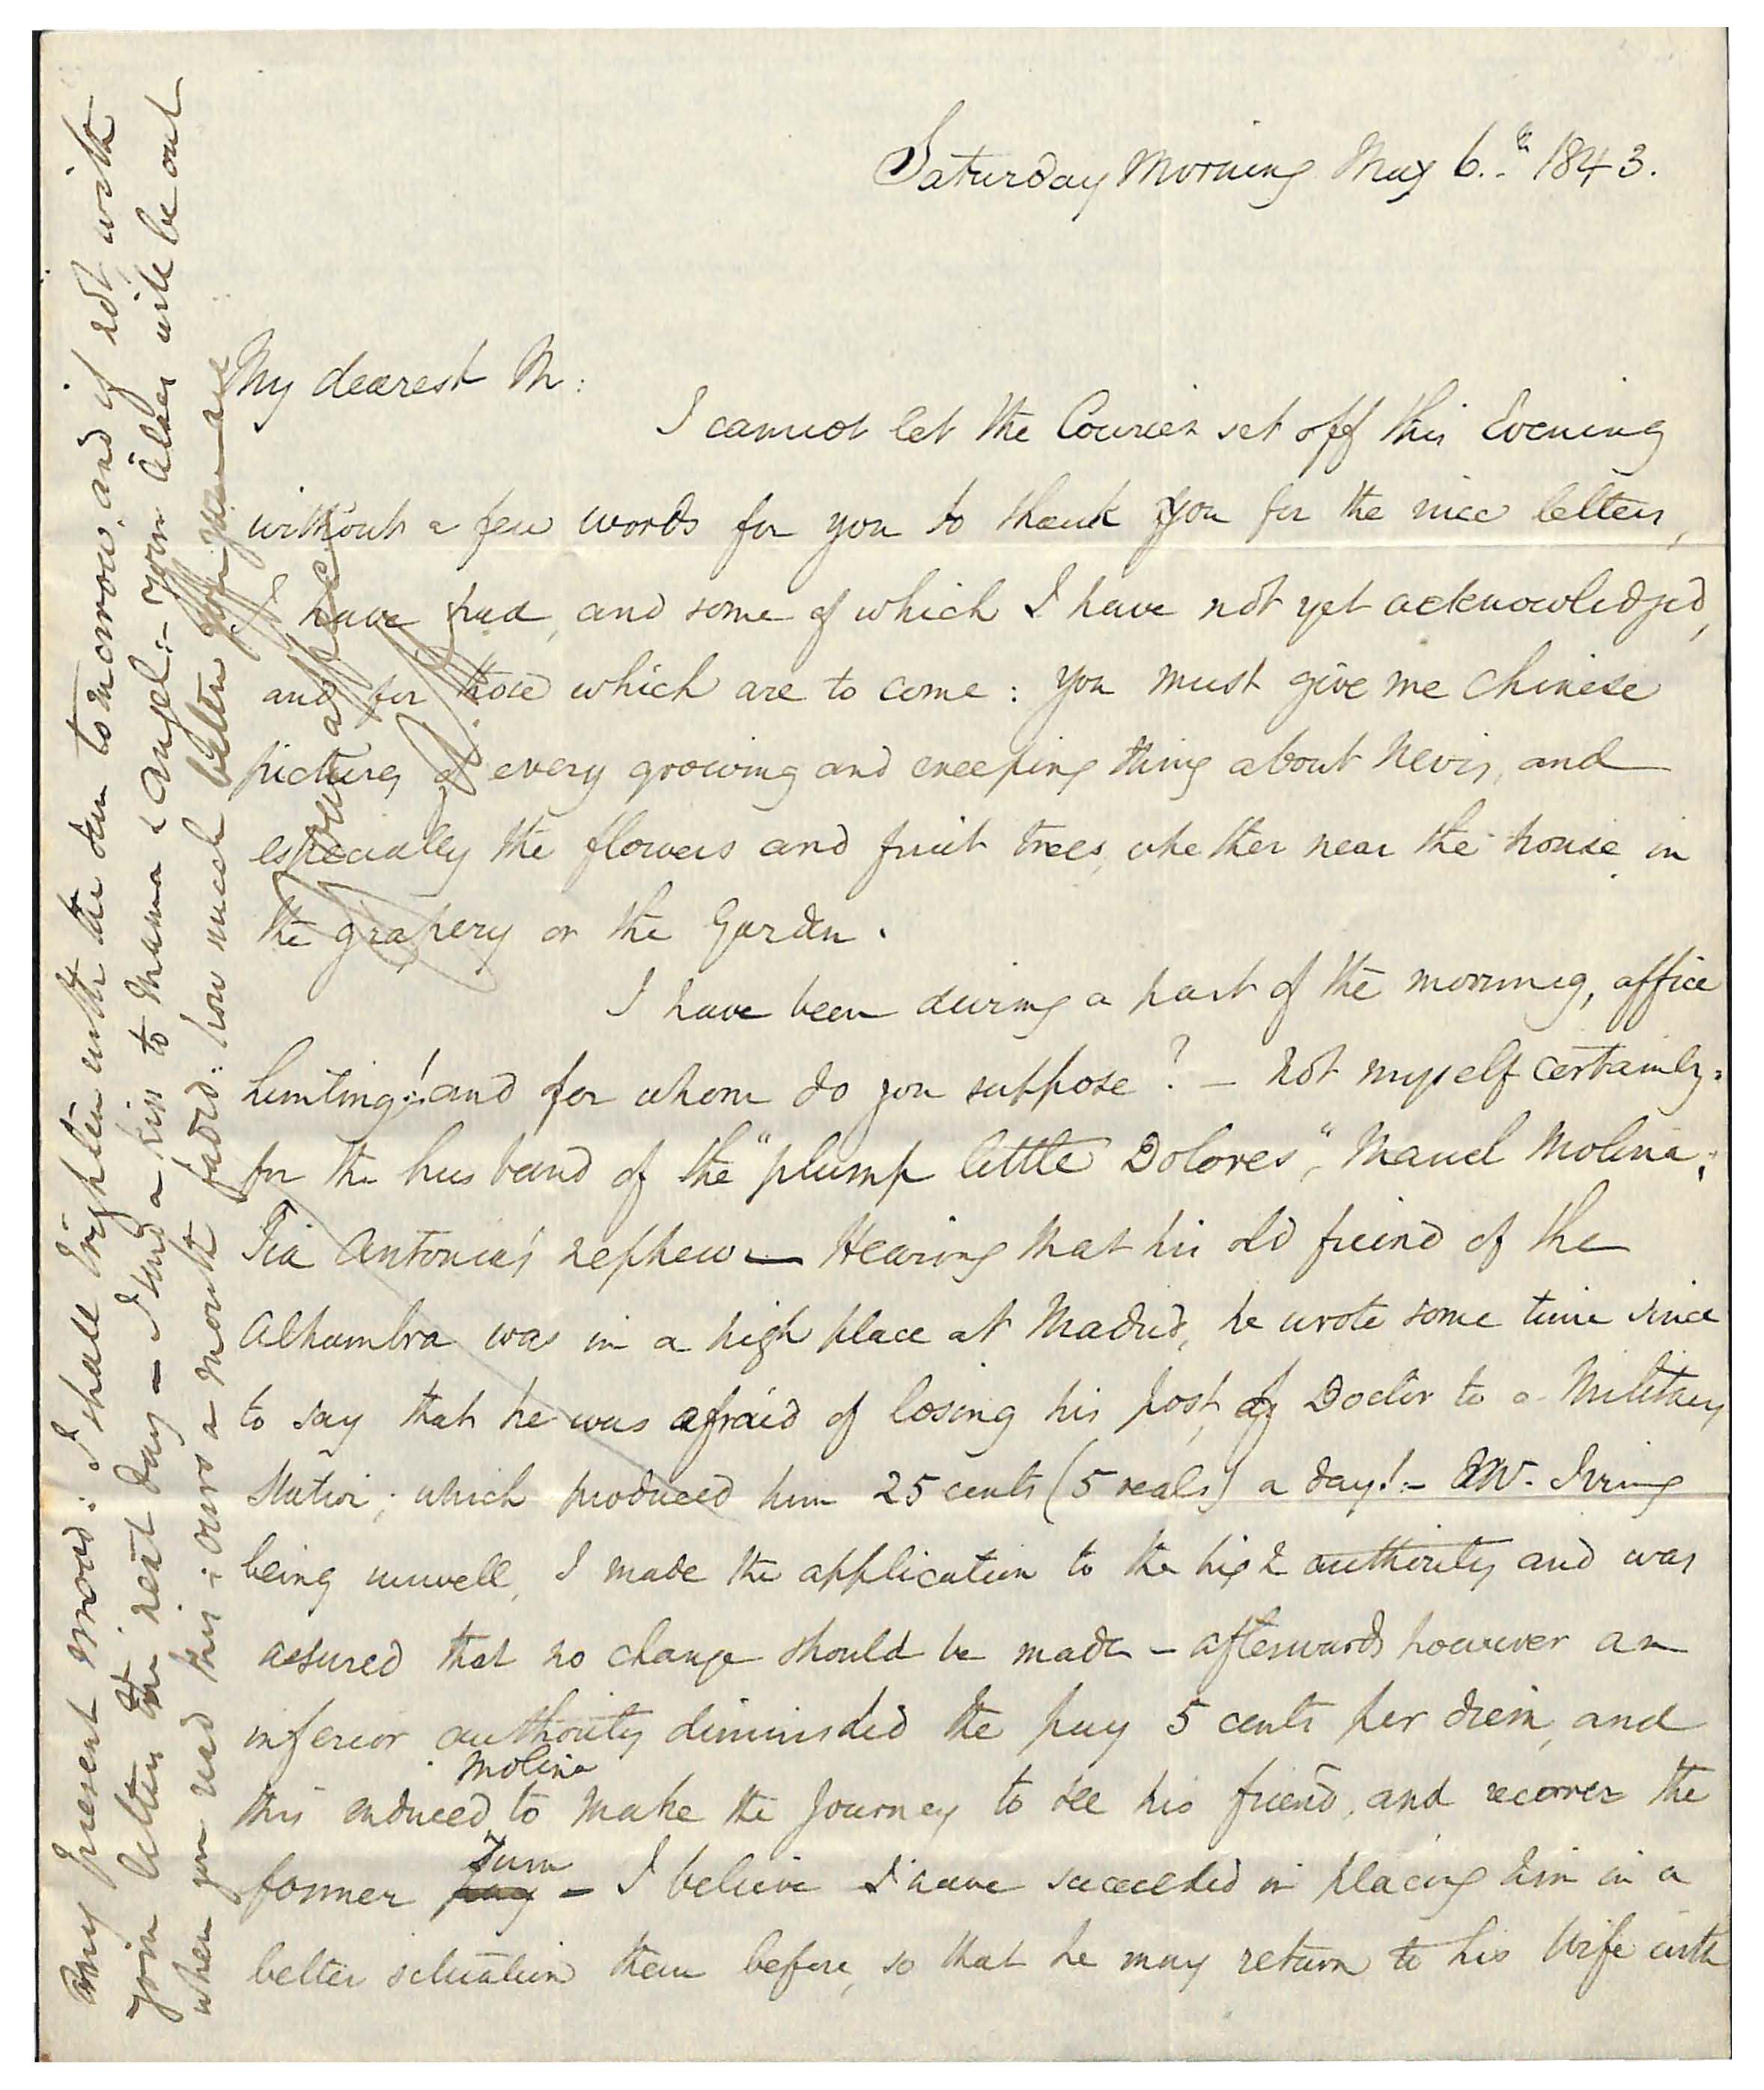 Saturday Morning May 6.th 1843.
My dearest M:
I cannot let the Courier set off this Evening
without a few words for you to thank you for the nice letters,
I have had, and some of which I have not yet acknowledged,
and for those which are to come: you must give me Chinese
pictures of every growing and creeping thing about Nevis, and
especially the flowers and fruit trees, whether near the house in
the grapery or the Garden.
I have been during a part of the morning, office
hunting! and for whom do you suppose? – not myself certainly:
for the husband of the "plump little Dolores", Manuel Molina;
Tia Antonia's nephew — Hearing that his old friend of the
Alhambra was in a high place at Madrid, he wrote some time since
to say that he was afraid of losing his post, of Doctor to a Military
Station; which produced him 25 cents (5 reals) a day! – W. Irving
being unwell, I made the application to the high authority and was
assured that no change should be made – afterwards however an
inferior authority diminished the pay 5 cents per diem, and
this induced Molina to make the Journey to see his friend, and recover the
former pay sum – I believe I have succeeded in placing him in a
better situation than before, so that he may return to his Wife with
my present mood: I shall brighten with the sun tomorrow, and if not with
your letters the next day – I send a kiss to Mama & Angel: – Your lilacs will be out
when you read this; ours a month faded: how much better you are